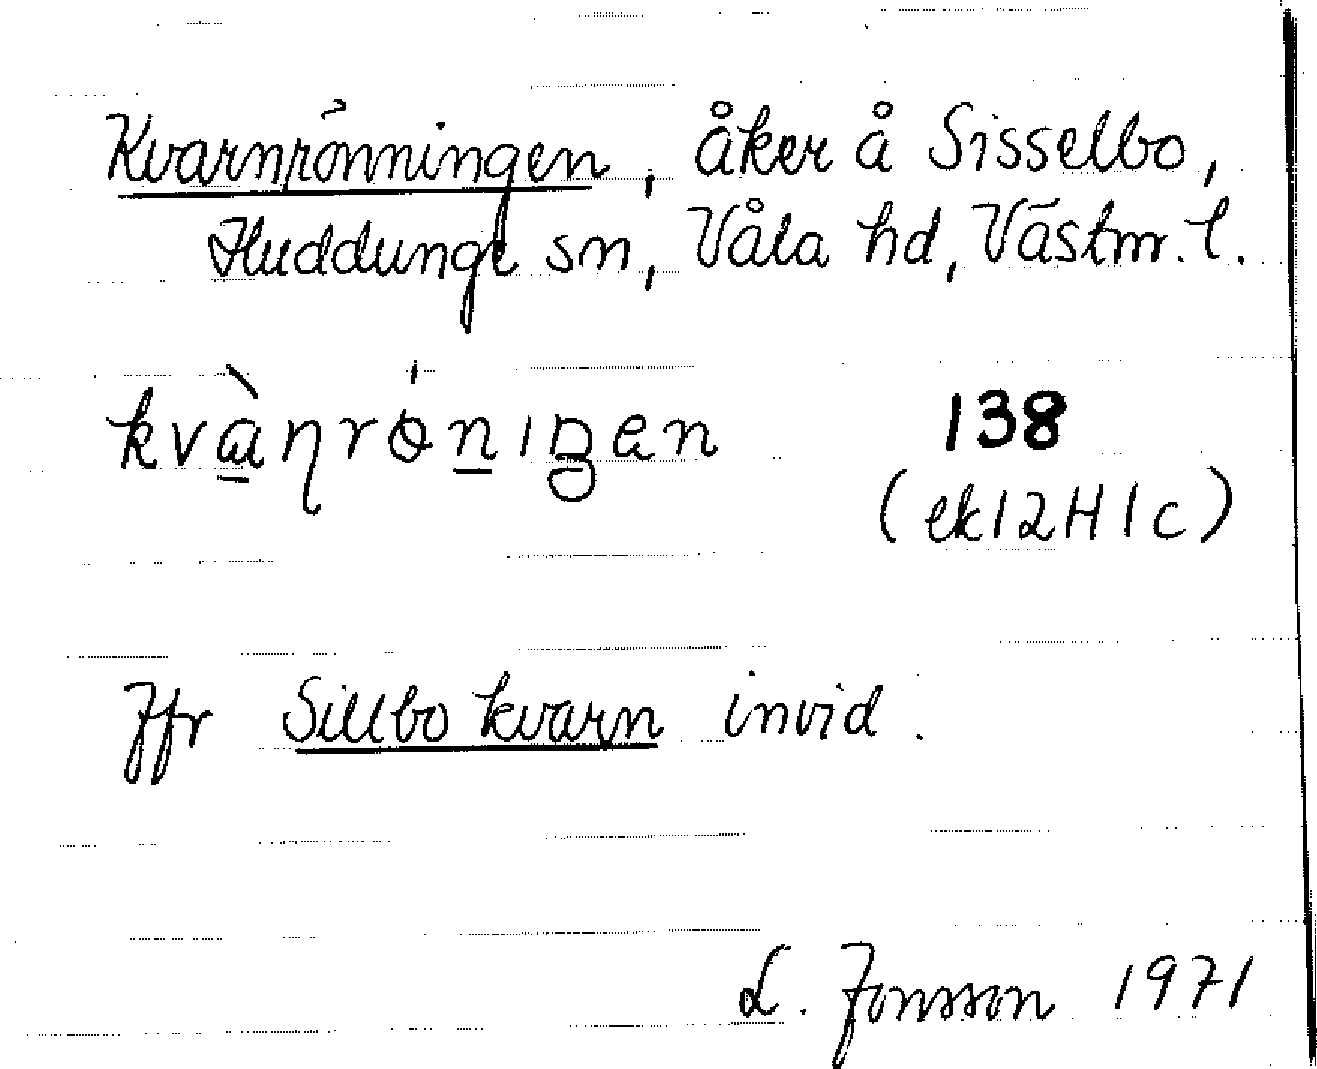 Kvarnrönningen, åker å Sisselbo,
Huddunge sn, Våla hd, Västm. l.
kvàɳrǿnıŋen 138
(ek 12H1c)
Jfr Sillbo kvarn invid.
L. Jonsson 1971